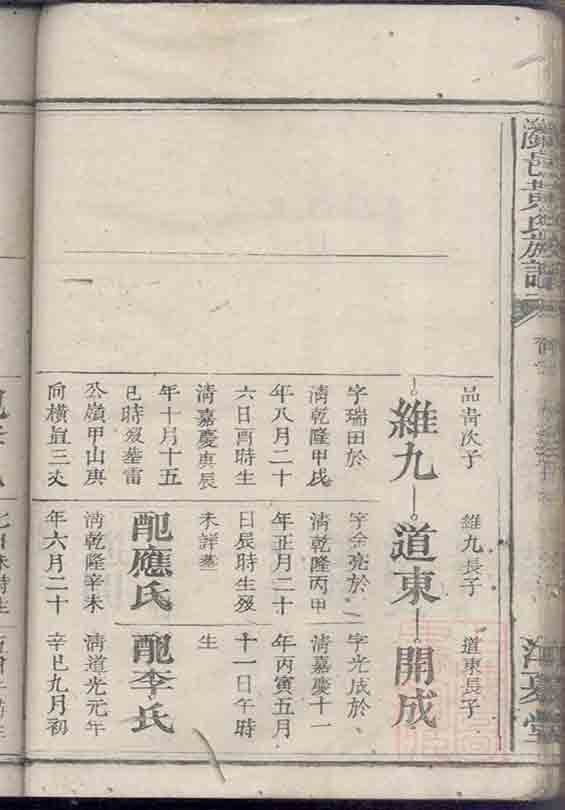 邑黃氏族譜
江夏堂
品青次子
維九
字瑞田於
清乾隆甲戌
年八月二十
六日酉時生
清嘉慶庚辰
年十月十五
巳時歿葬雷
公嶺甲山庚
向橫直三丈
維九長子
道東
字金亮於
清乾隆丙甲
年正月二十
日辰時生歿
未詳葬
配應氏
清乾隆辛未
年六月二十
道東長子
開成
字光成於
清嘉慶十一
年丙寅五月
十一日午時
生
配李氏
清道光元年
辛巳九月初